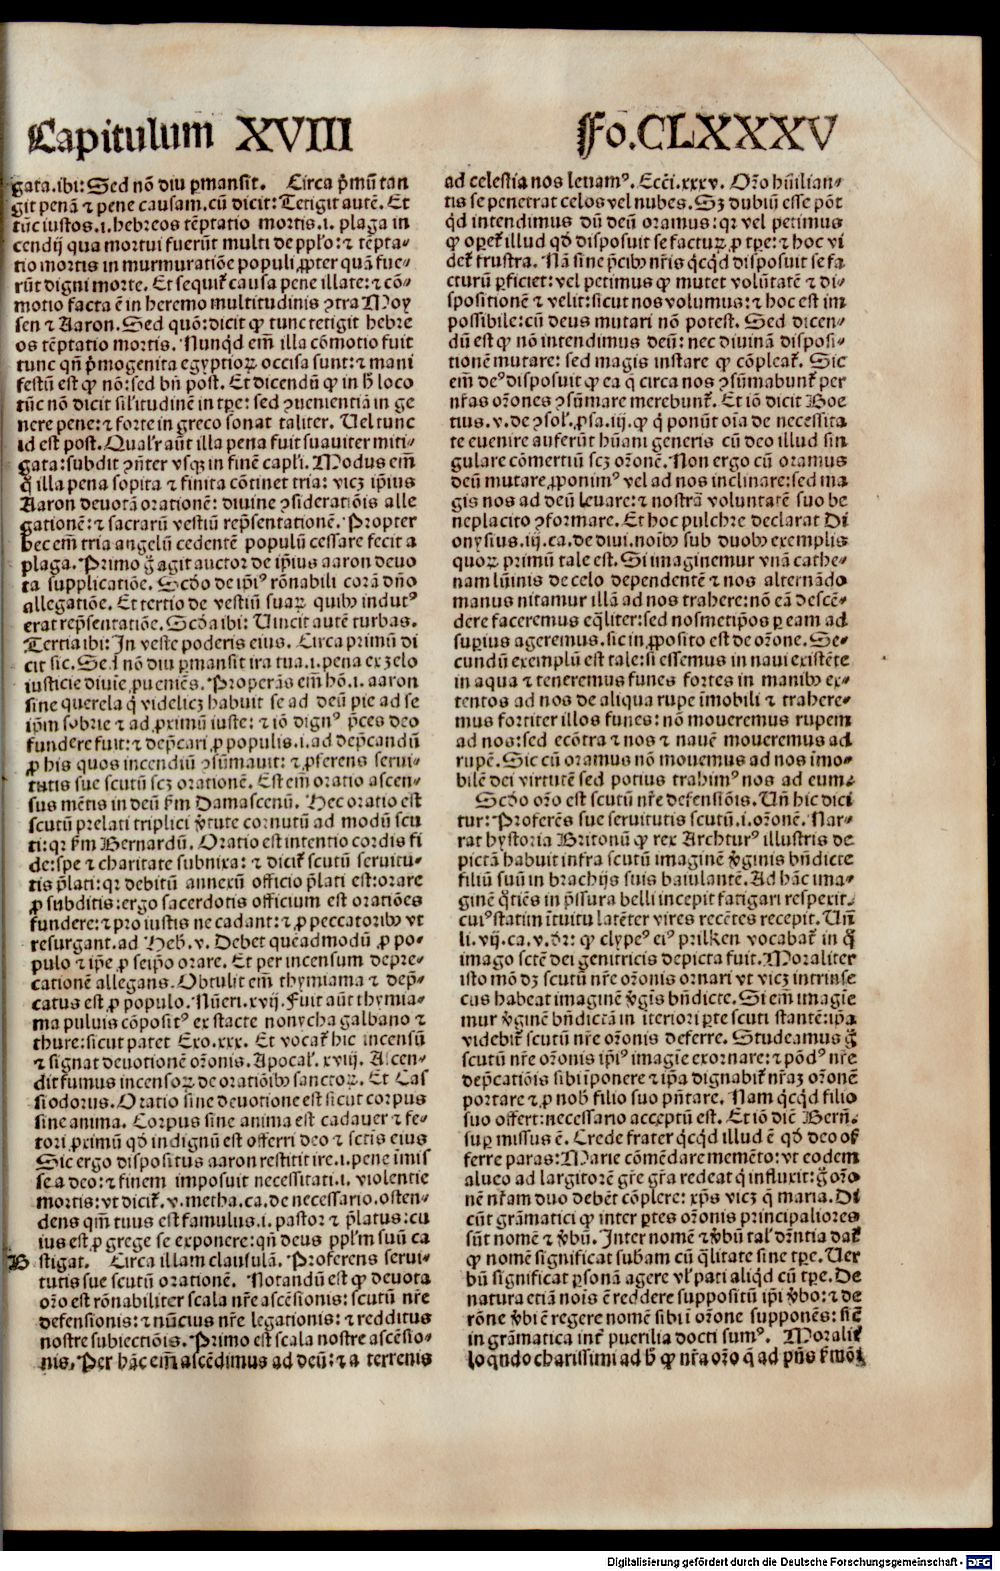 Capitulum XVIII
Fo.CLXXXV
gata.ibi: Sed nō diu ꝑmansit. Circa p̄mū tan
git penā ⁊ pene causam.cū dicit: Tetigit autē. Et
tūc iustos.i.hebreos tēptatio mortis.i. plaga in
cendij qua mortui fuerūt multi de ppl̄o: ⁊ tēpta⸗
tio mortis in murmuratiōe populi ꝓpter quā fue⸗
rūt digni morte. Et sequit̄ causa pene illate: ⁊ cō⸗
motio facta ē in heremo multitudinis ꝯtra Moy
sen ⁊ Aaron. Sed quō: dicit ꝙ tunc tetigit hebre
os tēptatio mortis. Nunqd em̄ illa cōmotio fuit
tunc qn̄ p̄mogenita egyptioꝝ occisa sunt: ⁊ mani
festū est ꝙ nō: sed bn̄ post. Et dicendū ꝙ in h̄ loco
tūc nō dicit sil'itudinē in tꝑe: sed ꝯuenientiā in ge
nere pene: ⁊ forte in greco sonat taliter. Uel tunc
id est post. Qual'r aūt illa pena fuit suauiter miti⸗
gata: subdit ꝯn̄ter vsqꝫ in finē capl'i. Modus em̄
q̄ illa pena sopita ⁊ finita cōtinet tria: vicꝫ ip̄ius
Aaron deuotā orationē: diuine ꝯsideratiōis alle
gationē: ⁊ sacrarū vestiū rep̄sentationē. Propter
hec em̄ tria angelū cedentē populū cessare fecit a
plaga. Primo g̊ agit auctor de ip̄ius aaron deuo
ta supplicatiōe. Scd̄o de ip̄iꝰ rōnabili corā dn̄o
allegatiōe. Et tertio de vestiū suaꝝ quibꝰ indutꝰ
erat rep̄sentatiōe. Scd̄a ibi: Uincit autē turbas.
Tertia ibi: In veste poderis eius. Circa primū di
cit sic. Sed nō diu ꝑmansit ira tua.i.pena ex zelo
iusticie diuīe ꝓueniēs. Properās em̄ hō.i. aaron
sine querela q̄ videlicꝫ habuit se ad deū pie ad se
ip̄m sobrie ⁊ ad ꝓximū iuste: ⁊ iō dignꝰ p̄ces deo
fundere fuit: ⁊ dep̄cari ꝓ populis.i.ad dep̄candū
ꝓ his quos incendiū ꝯsūmauit: ⁊ ꝓferens serui⸗
tutis sue scutū scꝫ orationē. Est em̄ oratio ascen⸗
sus mētis in deū ẜm Damascenū. Hec oratio est
scutū prelati triplici v̄tute cornutū ad modū scu
ti: qr ẜm Bernardū. Oratio est intentio cordis fi
de: spe ⁊ charitate subnixa: ⁊ dicit̄ scutū seruitu⸗
tis p̄lati: qr debitū annexū officio p̄lati est: orare
ꝓ subditis: ergo sacerdotis officium est oratiōes
fundere: ⁊ pro iustis ne cadant: ⁊ ꝓ peccatoribꝰ vt
resurgant. ad Heb̄. v. Debet quēadmodū ꝓ po⸗
pulo ⁊ ip̄e ꝓ seip̄o orare. Et per incensum depre⸗
cationē allegans. Obtulit em̄ thymiama ⁊ dep̄⸗
catus est ꝓ populo. Nūeri.xvij. Fuit aūt thymia⸗
ma puluis cōpositꝰ ex stacte nonycha galbano ⁊
thure: sicut patet Exo.xxx. Et vocat̄ hic incensū
⁊ signat deuotionē or̄onis. Apocal'. xviij. Ascen⸗
dit fumus incensoꝝ de oratiōibꝰ sanctoꝝ. Et Cas
siodorus. Oratio sine deuotione est sicut corpus
sine anima. Corpus sine anima est cadauer ⁊ fe⸗
tori ꝓximū qd̄ indignū est offerri deo ⁊ sctīs eius
Sic ergo dispositus aaron restitit ire.i.pene īmis
se a deo: ⁊ finem imposuit necessitati.i. violentie
mortis: vt dicit̄. v. metha.ca. de necessario. osten⸗
dens qm̄ tuus est famulus.i. pastor ⁊ p̄latus: cu
ius est ꝓ grege se exponere: qn̄ deus ppl'm suū ca
B stigat. Circa illam clausulā. Proferens serui⸗
tutis sue scutū orationē. Notandū est ꝙ deuota
or̄o est rōnabiliter scala nr̄e ascēsionis: scutū nr̄e
defensionis: ⁊ nūcius nr̄e legationis: ⁊ redditus
nostre subiectiōis. Primo est scala nostre ascēsio⸗
nis. Per hāc em̄ ascēdimus ad deū: ⁊ a terrenis
ad celestia nos leuamꝰ. Ecci.xxxv. Or̄o hūilian⸗
tis se penetrat celos vel nubes. Sꝫ dubiū esse pōt
qd intendimus dū deū oramus: qr vel petimus
ꝙ oꝑet̄ illud qd̄ disposuit se facturꝝ ꝓ tꝑe: ⁊ hoc vi
det̄ frustra. Nā sine p̄cibꝰ nr̄is qcqd disposuit se fa
cturū ꝑficiet: vel petimus ꝙ mutet volūtatē ⁊ di⸗
spositionē ⁊ velit: sicut nos volumus: ⁊ hoc est im
possibile: cū deus mutari nō potest. Sed dicen⸗
dū est ꝙ nō intendimus deū: nec diuinā disposi⸗
tionē mutare: sed magis instare ꝙ cōpleat̄. Sic
em̄ deꝰ disposuit ꝙ ea q̄ circa nos ꝯsūmabunt̄ per
nr̄as or̄ones ꝯsūmare merebunt̄. Et iō dicit Boe
tius. v. de ꝯsol'. ꝓsa.iij. ꝙ q̄ ponūt oīa de necessita
te euenire auferūt hūani generis cū deo illud sin
gulare cōmertiū scꝫ or̄onē. Non ergo cū oramus
deū mutare ꝓponimꝰ vel ad nos inclinare: sed ma
gis nos ad deū leuare: ⁊ nostrā voluntatē suo be
neplacito ꝯformare. Et hoc pulchre declarat Di
onysius.iij.ca.de diui.noībꝰ sub duobꝰ exemplis
quoꝝ primū tale est. Si imaginemur vnā cathe⸗
nam lūinis de celo dependentē ⁊ nos alternādo
manus nitamur illā ad nos trahere: nō eā descē⸗
dere faceremus eq̄liter: sed nosmetip̄os ꝑ eam ad
suꝑius ageremus. sic in ꝓposito est de or̄one. Se⸗
cundū exemplū est tale: si essemus in naui existēte
in aqua ⁊ teneremus funes fortes in manibꝰ ex⸗
tentos ad nos de aliqua rupe īmobili ⁊ trahere⸗
mus fortiter illos funes: nō moueremus rupem
ad nos: sed ecōtra ⁊ nos ⁊ nauē moueremus ad
rupē. Sic cū oramus nō mouemus ad nos īmo⸗
bilē dei virtutē sed potius trahimꝰ nos ad eum.
Scd̄o or̄o est scutū nr̄e defensiōis. Un̄ hic dici
tur: Proferēs sue seruitutis scutū.i.or̄onē. Nar⸗
rat hystoria Britonū ꝙ rex Archturꝰ illustris de
pictā habuit infra scutū imaginē v̄ginis bn̄dicte
filiū suū in brachijs suis baiulantē. Ad hāc ima⸗
ginē q̄tiēs in p̄ssura belli incepit fatigari respexit.
cuiꝰ statim ītuitu latēter vires recētes recepit. Un̄
li.vij.ca.v.dr̄: ꝙ clypeꝰ eiꝰ prilken vocabat̄ in q̄
imago scte dei genitricis depicta fuit. Moraliter
isto mō dꝫ scutū nr̄e or̄onis ornari vt vicꝫ intrinse
cus habeat imaginē v̄gīs bn̄dicte. Si em̄ imagie
mur v̄ginē bn̄dictā in īteriori ꝑte scuti stantē: ip̄a
videbit̄ scutū nr̄e or̄onis deferre. Studeamus g̊
scutū nr̄e or̄onis ip̄iꝰ imagīe exornare: ⁊ pōdꝰ nr̄e
dep̄catiōis sibi īponere ⁊ ip̄a dignabit̄ nr̄aꝫ or̄onē
portare ⁊ ꝓ nob̄ filio suo pn̄tare. Nam qcqd filio
suo offert: necessario acceptū est. Et iō diē Bern̄.
suꝑ missus ē. Crede frater qcqd illud ē qd̄ deo of
ferre paras: Marie cōmēdare memēto: vt eodem
alueo ad largitorē gr̄e gr̄a redeat q̄ influxit: g̊ or̄o
nē nr̄am duo debēt cōplere: xp̄s vicꝫ q̄ maria. Di
cūt grāmatici ꝙ inter ꝑtes or̄onis principaliores
sūt nomē ⁊ v̄bū. Inter nomē ⁊ v̄bū tal' dr̄ntia dat̄
ꝙ nomē significat subam cū q̄litate sine tꝑe. Uer
bū significat ꝑsonā agere vl' pati aliqd cū tꝑe. De
natura etiā noīs ē reddere suppositū ip̄i v̄bo: ⁊ de
rōne v̄bi ē regere nomē sibi ī or̄one supponēs: sic̄
in grāmatica int̄ puerilia docti sumꝰ. Moralit̄
loqndo charissimi ad h̄ ꝙ nr̄a or̄o q̄ ad
Digitalisierung gefördert durch die Deutsche Forschungsgemeinschaft - DFG